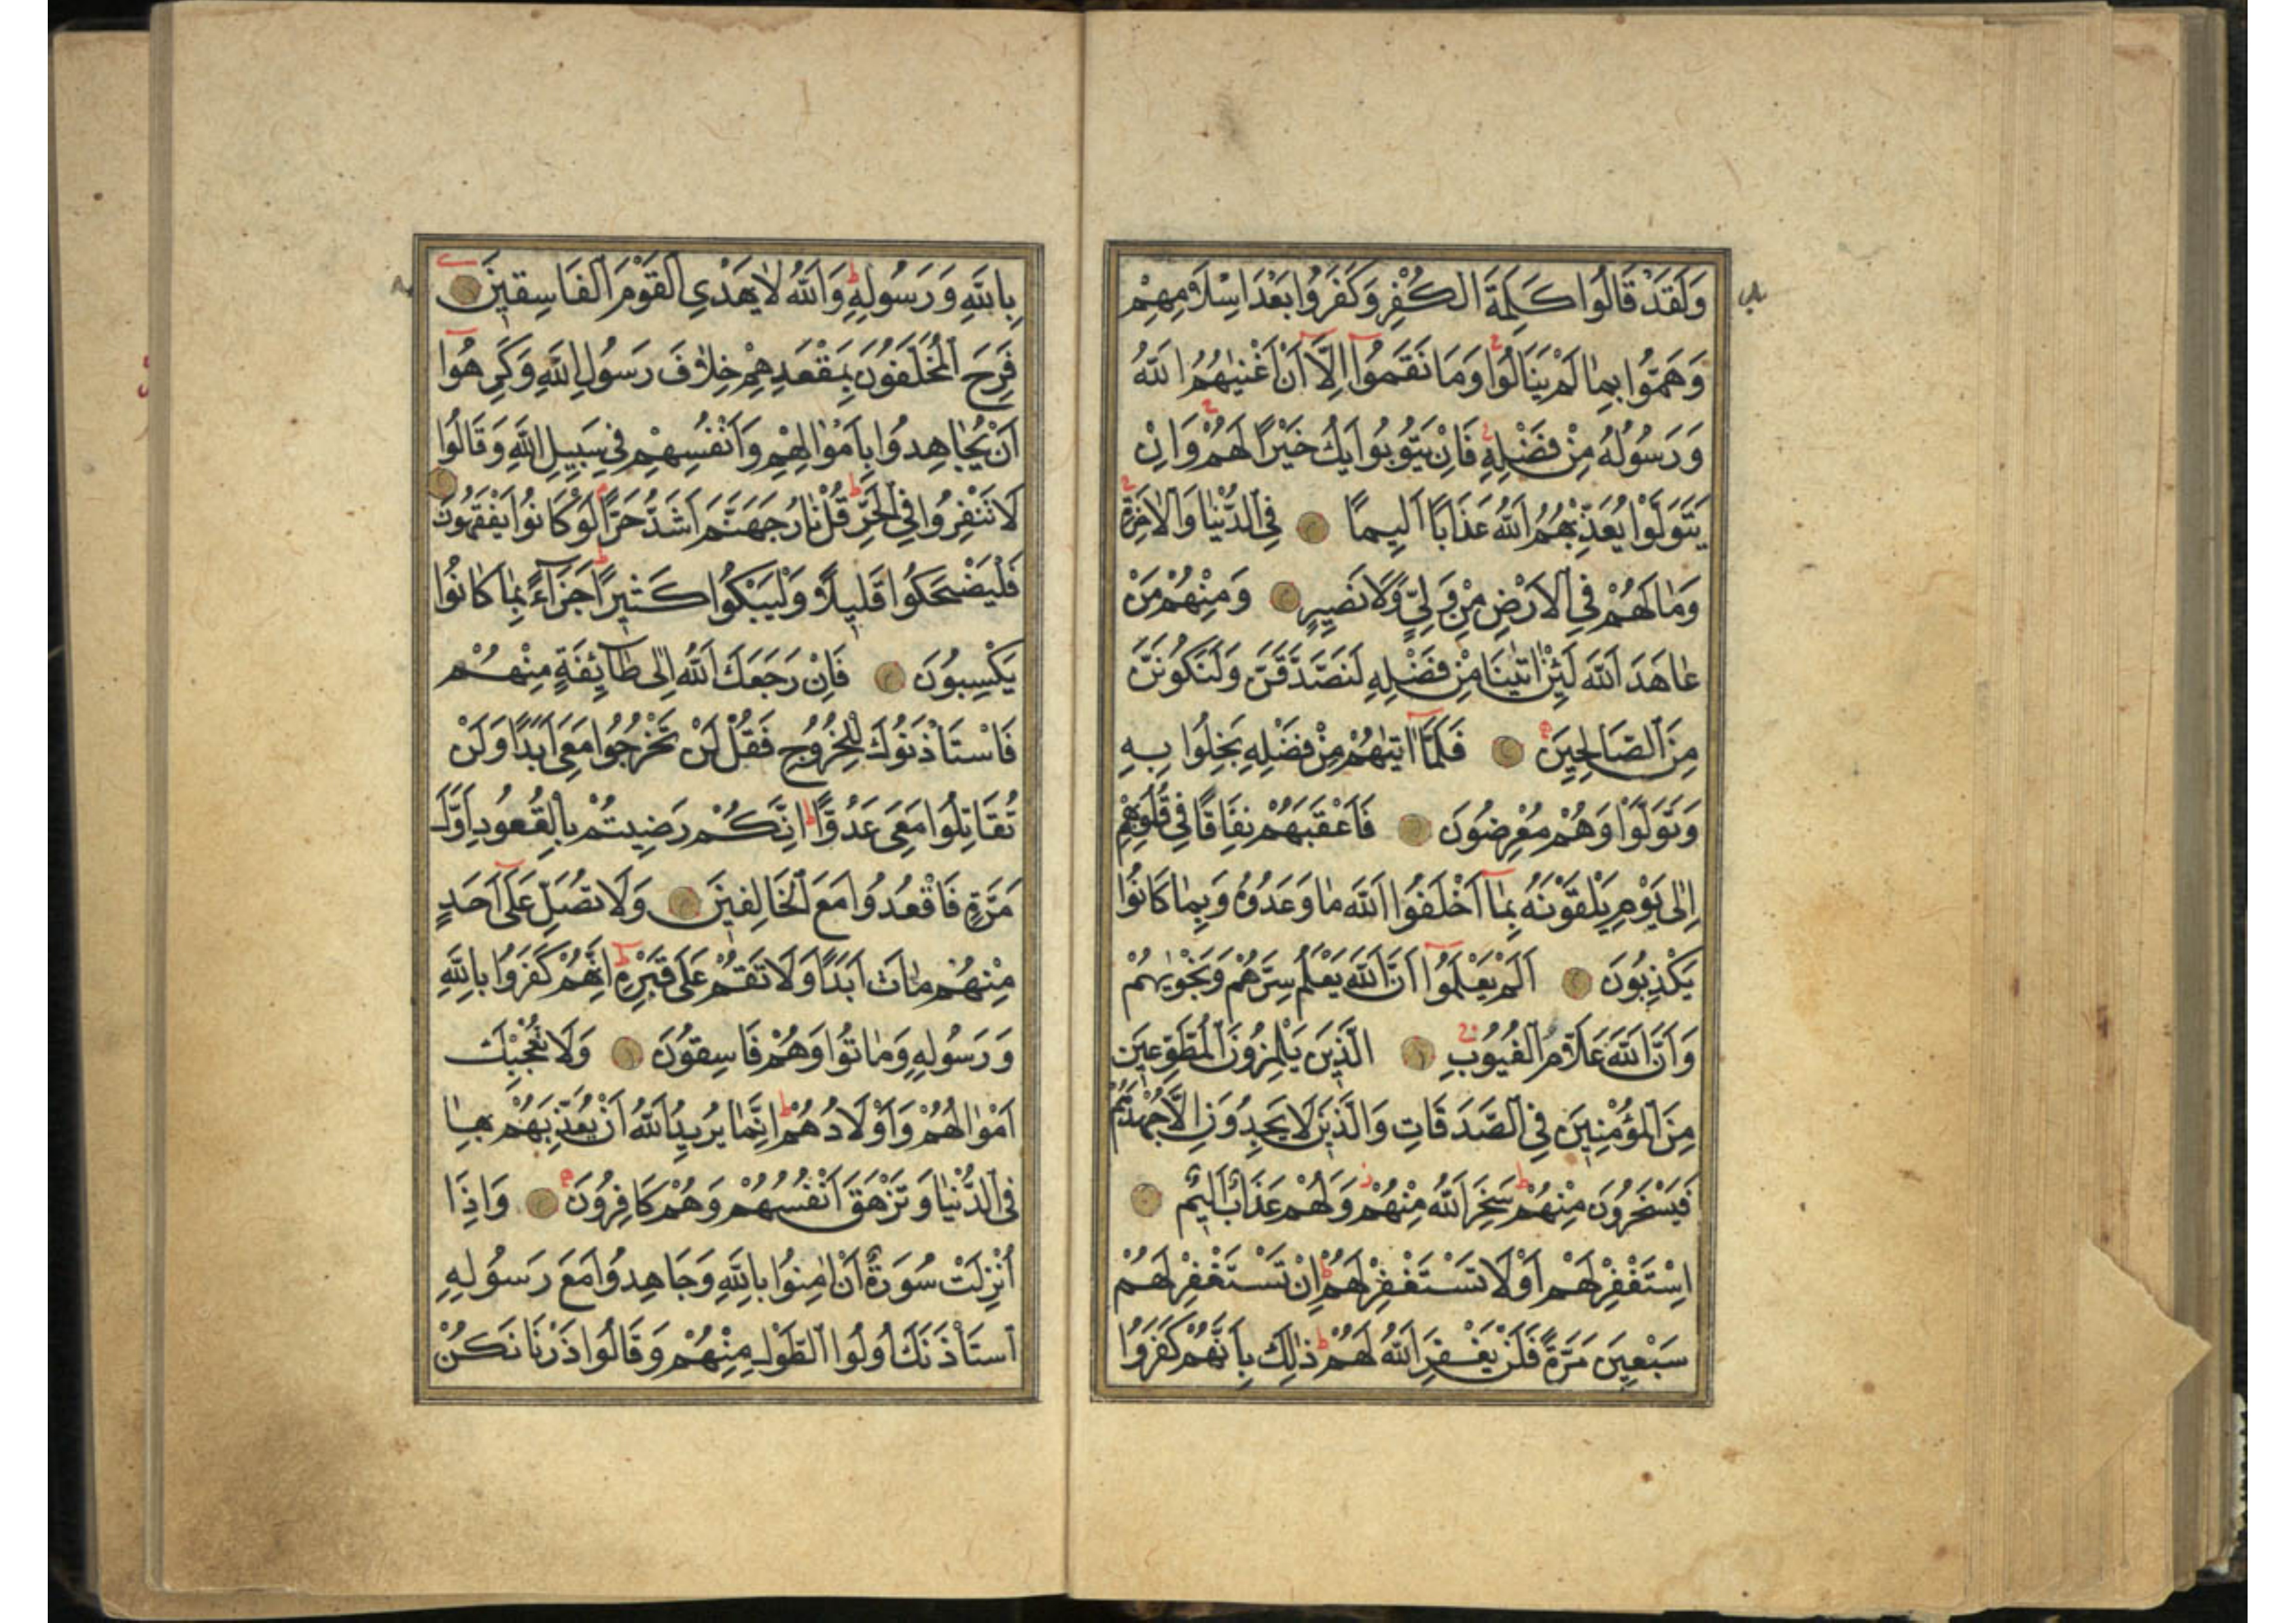 وَلَقَدْ قَالُوا كَلِمَةَ الْكُفْرِ وَكَفَرُوا بَعْدَ اِسْلَامِهِمْ
وَهَمُّوا بِمَا لَمْ يَنَالُوا وَمَا نَقَمُوا اِلَّا اَنْ اَغْنٰيهُمُ اللّٰهُ
وَرَسُولُهُ مِنْ فَضْلِهِ فَاِنْ يَتُوبُوا يَكُ خَيْرًا لَهُمْ وَاِنْ
يَتَوَلَّوْا يُعَذِّبْهُمُ اللّٰهُ عَذَابًا اَلِيمًا فِي الدُّنْيَا وَالْاٰخِرَةِ
وَمَا لَهُمْ فِي الْاَرْضِ مِنْ وَلِيٍّ وَلَا نَصِيرٍ وَمِنْهُمْ مَنْ
عَاهَدَ اللّٰهَ لَئِنْ اٰتٰينَا مِنْ فَضْلِهِ لَنَصَّدَّقَنَّ وَلَنَكُونَنَّ
مِنَ الصَّالِحِينَ فَلَمَّا اٰتٰيهُمْ مِنْ فَضْلِهِ بَخِلُوا بِهِ
وَتَوَلَّوْا وَهُمْ مُعْرِضُونَ فَاَعْقَبَهُمْ نِفَاقًا فِي قُلُوبِهِمْ
اِلٰى يَوْمِ يَلْقَوْنَهُ بِمَا اَخْلَفُوا اللّٰهَ مَا وَعَدُوهُ وَبِمَا كَانُوا
يَكْذِبُونَ اَلَمْ يَعْلَمُوا اَنَّ اللّٰهَ يَعْلَمُ سِرَّهُمْ وَنَجْوٰيهُمْ
وَاَنَّ اللّٰهَ عَلَّامُ الْغُيُوبِ اَلَّذِينَ يَلْمِزُونَ الْمُطَّوِّعِينَ
مِنَ الْمُؤْمِنِينَ فِي الصَّدَقَاتِ وَالَّذِينَ لَا يَجِدُونَ اِلَّا جُهْدَهُمْ
فَيَسْخَرُونَ مِنْهُمْ سَخِرَ اللّٰهُ مِنْهُمْ وَلَهُمْ عَذَابٌ اَلِيمٌ
اِسْتَغْفِرْ لَهُمْ اَوْ لَا تَسْتَغْفِرْ لَهُمْ اِنْ تَسْتَغْفِرْ لَهُمْ
سَبْعِينَ مَرَّةً فَلَنْ يَغْفِرَ اللّٰهُ لَهُمْ ذٰلِكَ بِاَنَّهُمْ كَفَرُوا
بِاللّٰهِ وَرَسُولِهِ وَاللّٰهُ لَا يَهْدِي الْقَوْمَ الْفَاسِقِينَ
فَرِحَ الْمُخَلَّفُونَ بِمَقْعَدِهِمْ خِلَافَ رَسُولِ اللّٰهِ وَكَرِهُوا
اَنْ يُجَاهِدُوا بِاَمْوَالِهِمْ وَاَنْفُسِهِمْ فِي سَبِيلِ اللّٰهِ وَقَالُوا
لَا تَنْفِرُوا فِي الْحَرِّ قُلْ نَارُ جَهَنَّمَ اَشَدُّ حَرًّا لَوْ كَانُوا يَفْقَهُونَ
فَلْيَضْحَكُوا قَلِيلًا وَلْيَبْكُوا كَثِيرًا جَزَاءً بِمَا كَانُوا
يَكْسِبُونَ فَاِنْ رَجَعَكَ اللّٰهُ اِلٰى طَائِفَةٍ مِنْهُمْ
فَاسْتَأْذَنُوكَ لِلْخُرُوجِ فَقُلْ لَنْ تَخْرُجُوا مَعِيَ اَبَدًا وَلَنْ
تُقَاتِلُوا مَعِيَ عَدُوًّا اِنَّكُمْ رَضِيتُمْ بِالْقُعُودِ اَوَّلَ
مَرَّةٍ فَاقْعُدُوا مَعَ الْخَالِفِينَ وَلَا تُصَلِّ عَلٰى اَحَدٍ
مِنْهُمْ مَاتَ اَبَدًا وَلَا تَقُمْ عَلٰى قَبْرِهِ اِنَّهُمْ كَفَرُوا بِاللّٰهِ
وَرَسُولِهِ وَمَاتُوا وَهُمْ فَاسِقُونَ وَلَا تُعْجِبْكَ
اَمْوَالُهُمْ وَاَوْلَادُهُمْ اِنَّمَا يُرِيدُ اللّٰهُ اَنْ يُعَذِّبَهُمْ بِهَا
فِي الدُّنْيَا وَتَزْهَقَ اَنْفُسُهُمْ وَهُمْ كَافِرُونَ وَاِذَا
اُنْزِلَتْ سُورَةٌ اَنْ اٰمِنُوا بِاللّٰهِ وَجَاهِدُوا مَعَ رَسُولِهِ
اسْتَأْذَنَكَ اُولُوا الطَّوْلِ مِنْهُمْ وَقَالُوا ذَرْنَا نَكُنْ